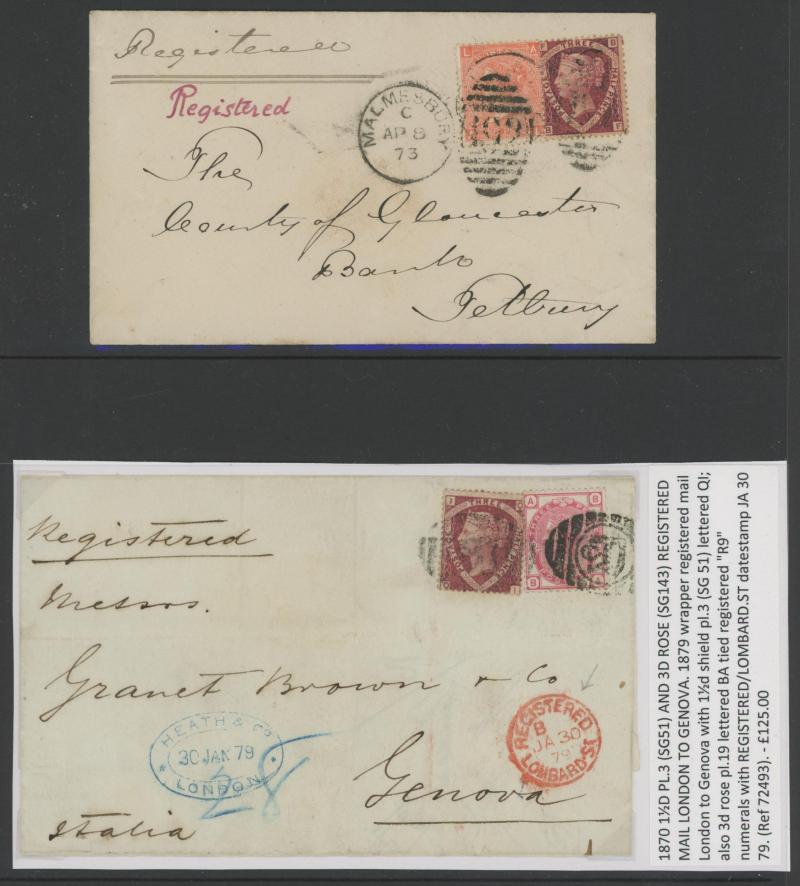 Registered
Registered
MALMESBURY
C
AP 8
73
L A
F B
THREE
B F
The
County of Gloucester
Bank
Tetbury
Registered
Messrs.
Granet Brown & Co
Genova
Italia
HEATH & Co
30 JAN 79
LONDON
28
REGISTERED
B
JA 30
79
LOMBARD-ST
THREE
A B
B
1870 1½D PL.3 (SG51) AND 3D ROSE (SG143) REGISTERED
MAIL LONDON TO GENOVA. 1879 wrapper registered mail
London to Genova with 1½d shield pl.3 (SG 51) lettered QJ;
also 3d rose pl.19 lettered BA tied registered "R9"
numerals with REGISTERED/LOMBARD.ST datestamp JA 30
79. (Ref 72493). - £125.00